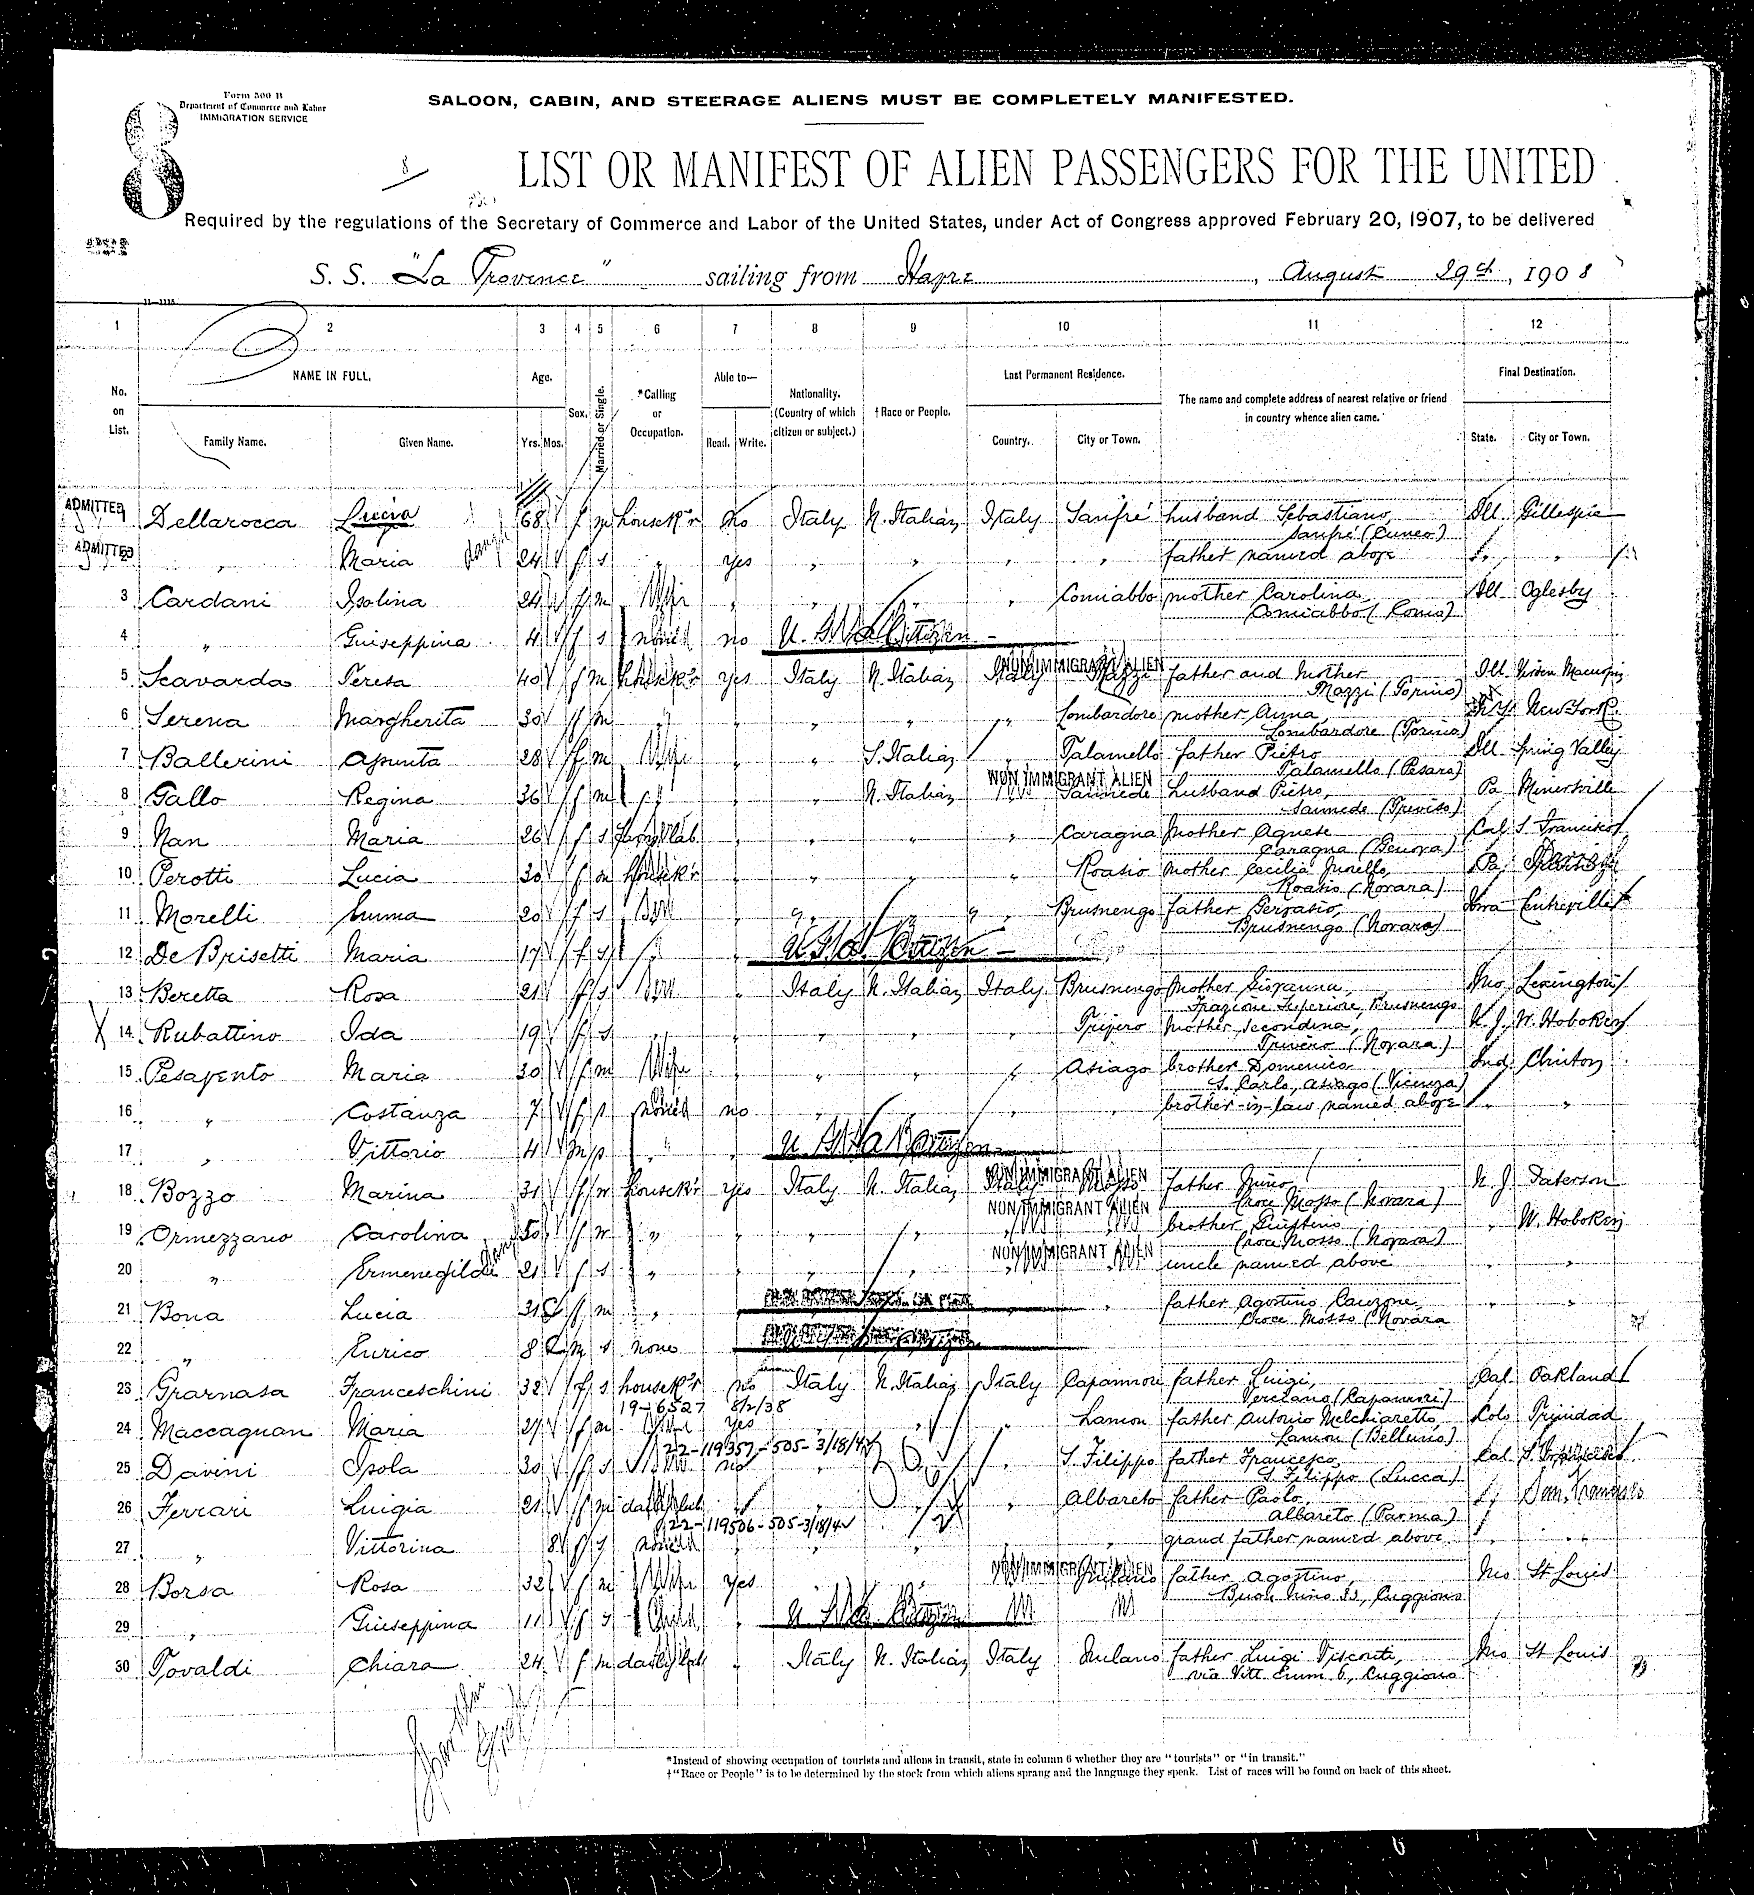 Form 500 B
Department of Commerce and Labor
IMMIGRATION SERVICE
8
SALOON, CABIN, AND STEERAGE ALIENS MUST BE COMPLETELY MANIFESTED.
8
LIST OR MANIFEST OF ALIEN PASSENGERS FOR THE UNITED
Required by the regulations of the Secretary of Commerce and Labor of the United States, under Act of Congress approved February 20, 1907, to be delivered
S. S. "La Provence" sailing from Havre, August 29th, 1908
1 2 3 4 5 6 7 8 9 10 11 12
No. on List. NAME IN FULL. Family Name. Given Name. Age. Yrs. Mos. Sex. Married or Single. *Calling or Occupation. Able to— Read. Write. Nationality. (Country of which citizen or subject.) †Race or People. Last Permanent Residence. Country. City or Town. The name and complete address of nearest relative or friend in country whence alien came. Final Destination. State. City or Town.
ADMITTED Dellarocca Lucia 68 f m housek'r no Italy N. Italian Italy Sanfrè husband Sebastiano, Ill Gillespie
Sanfrè (Cuneo)
ADMITTED " Maria 24 f s " yes " " " " father named above " "
3 Cardani Isolina 24 f m Wife " " " " Comiabbo mother Carolina Ill Oglesby
Comiabbo (Como)
4 " Guiseppina 4 f s no U. S. Citizen
5 Scavarda Teresa 40 f m housek'r yes Italy N. Italian Italy Mazzi NON IMMIGRANT ALIEN father and mother Ill
Mazzi (Torino)
6 Serena Margherita 30 f m " " " " " Lombardore mother Anna, N.Y. New York
Lombardore (Torino)
7 Ballerini Assunta 28 f m Wife " " S. Italian " Talamello father Pietro Ill Spring Valley
Talamello (Pesaro)
8 Gallo Regina 36 f m " " " N. Italian NON IMMIGRANT ALIEN husband Pietro, Pa Minersville
(Treviso)
9 Nan Maria 26 f s " " " " Caragna mother Agnese Cal S. Francisco
Caragna (Genova)
10 Perotti Lucia 30 f m housek'r " " " " Roasio mother Cecilia Pa
Roasio (Novara)
11 Morelli Emma 20 f s " " " " Brusnengo father Gervasio, Iowa Centreville
Brusnengo (Novara)
12 De Brisetti Maria 17 f s " "
13 Beretta Rosa 21 f s " Italy N. Italian Italy Brusnengo mother Giovanna, Mo Lexington
Frazione Superiore, Brusnengo
14 Rubattino Ida 19 f s " " " " " Trivero mother Secondina, N. J. W. Hoboken
Trivero (Novara)
15 Pesavento Maria 30 f m Wife " " " " Asiago brother Domenico Ind Clinton
S. Carlo, Asiago (Vicenza)
16 " Costanza 7 f s no " " " " brother-in-law named above " "
17 " Vittorio 4 m s " "
18 Bozzo Marina 31 f m housek'r yes Italy N. Italian Italy Mosso NON IMMIGRANT ALIEN father N. J. Paterson
Croce Mosso (Novara)
19 Ormezzano Carolina 50 f m " " " " NON IMMIGRANT ALIEN brother " W. Hoboken
Croce Mosso (Novara)
20 " Ermenegilda 21 f s " " " " NON IMMIGRANT ALIEN uncle named above " "
21 Bona Lucia 31 f m " " " father Agostino " "
Croce Mosso (Novara
22 " Enrico 8 m s none
23 Grarnasa Franceschini 32 f s housek'r no Italy N. Italian Italy Capannori father Luigi, Cal Oakland
(Capannori)
19-6527 8/2/38
24 Maccagnan Maria 27 f m yes " " " Lamon father Antonio Melchiaretto, Colo Trinidad
Lamon (Belluno)
22-119357-505-3/18/42
25 Davini Isola 30 f s no " " S. Filippo father Francesco, Cal S. Francisco
S. Filippo (Lucca)
26 Ferrari Luigia 21 f m " " Albareto father Paolo, " San Francisco
Albareto (Parma)
22-119506-505-3/18/42
27 " Vittorina 8 f s " " " grand father named above " "
28 Borsa Rosa 32 f m Wife yes " " NON IMMIGRANT ALIEN Milano father Agostino, Mo St Louis
Cuggiono
29 " Giuseppina 11 f s Child " U. S. Citizen
30 Tovaldi Chiara 24 f m " Italy N. Italian Italy Milano father Luigi Visconti, Mo St Louis
via Vitt Eman 6, Cuggiono
*Instead of showing occupation of tourists and aliens in transit, state in column 6 whether they are "tourists" or "in transit."
†"Race or People" is to be determined by the stock from which aliens sprang and the language they speak. List of races will be found on back of this sheet.